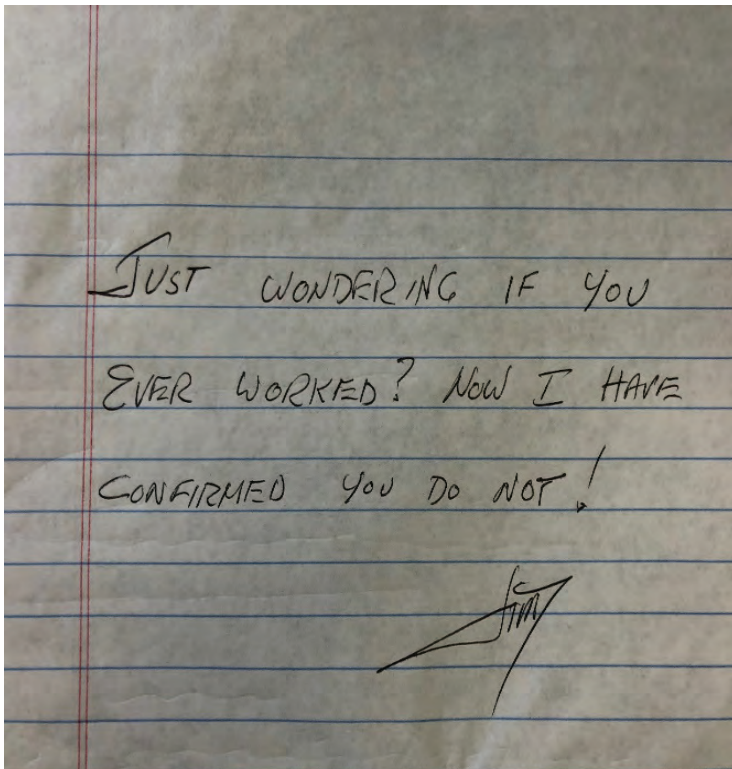 JUST WONDERING IF YOU
EVER WORKED? NOW I HAVE
CONFIRMED YOU DO NOT!
Jim